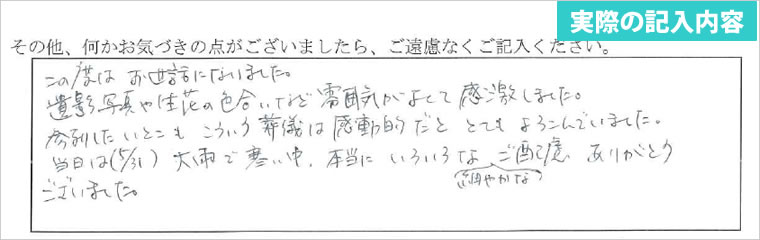 実際の記入内容
その他、何かお気づきの点がございましたら、ご遠慮なくご記入ください。
この度は お世話になりました。
遺影写真や生花の色合いなど 雰囲気がよくて 感激しました。
参列したいとこも こういう 葬儀は 感動的だと とても よろこんでいました。
当日は(5/31) 大雨で 寒い中、本当に いろいろな ご配慮 ありがとう
(細やかな)
ございました。